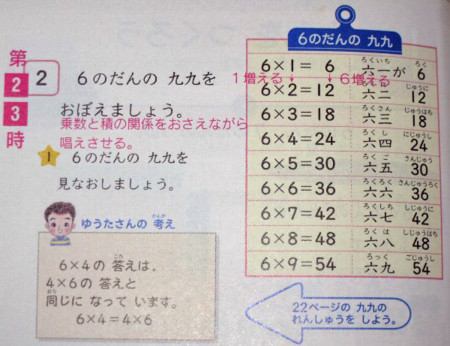 第
2
3
時
2 6のだんの 九九を
おぼえましょう。
乗数と積の関係をおさえながら
唱えさせる。
1 6のだんの 九九を
見なおしましょう。
ゆうたさんの 考え
かんが
6×4の 答えは、
こた
4×6の 答えと
同じに なって います。
おな
6×4=4×6
6のだんの 九九
1増える 6増える
6×1= 6 六一が 6
ろくいち ろく
6×2=12 六二 12
ろくに じゅうに
6×3=18 六三 18
ろくさん じゅうはち
6×4=24 六四 24
ろくし にじゅうし
6×5=30 六五 30
ろくご さんじゅう
6×6=36 六六 36
ろくろく さんじゅうろく
6×7=42 六七 42
ろくしち しじゅうに
6×8=48 六八 48
ろくは しじゅうはち
6×9=54 六九 54
ろっく ごじゅうし
22ページの 九九の
れんしゅうを しよう。